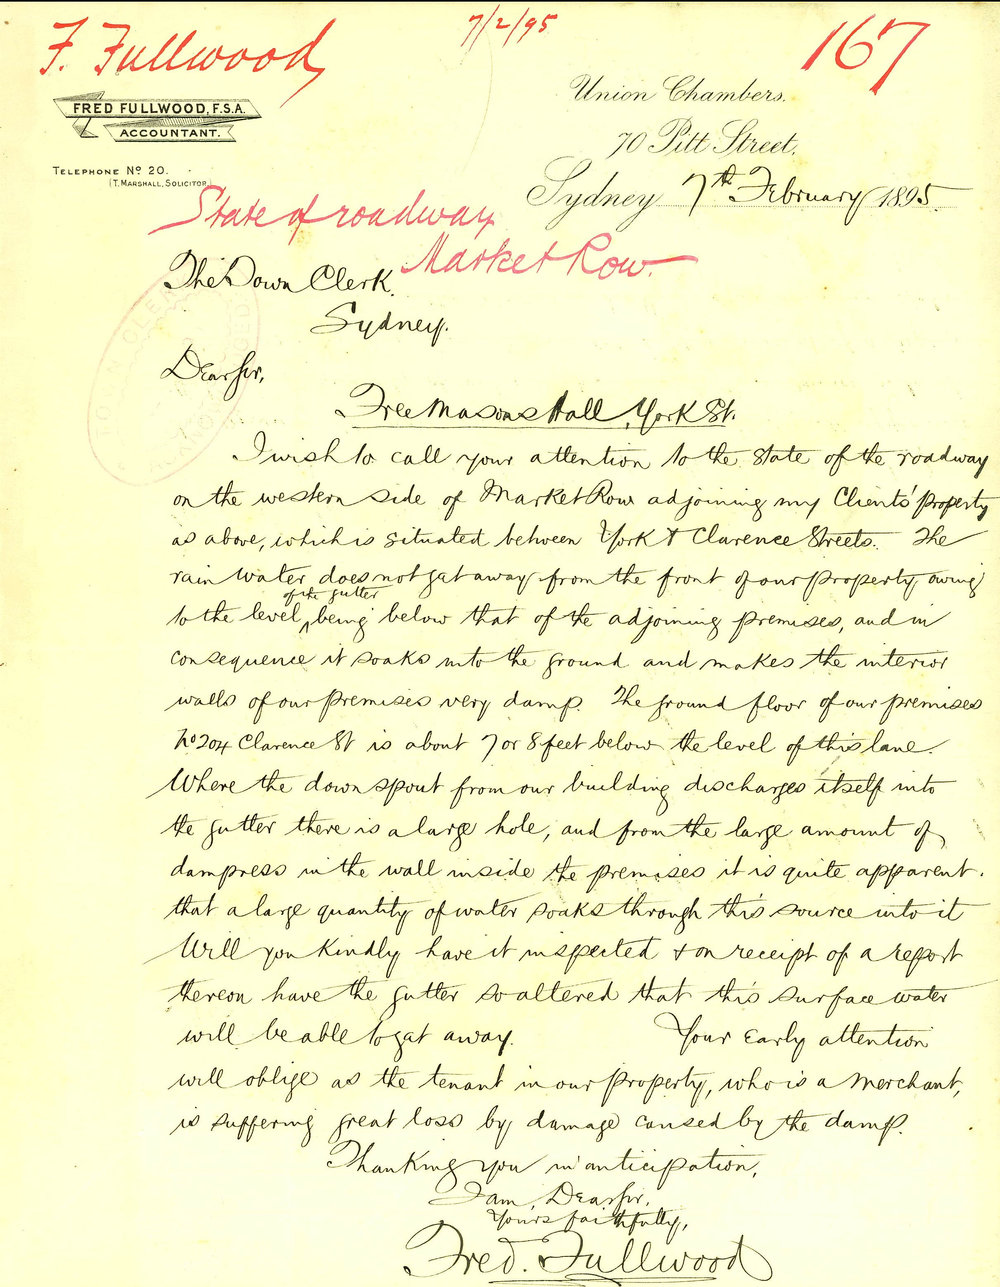 F. Fullwood
7/2/95
167
FRED FULLWOOD, F.S.A.
ACCOUNTANT.
TELEPHONE No 20.
(T. MARSHALL, SOLICITOR.)
Union Chambers.
70 Pitt Street,
Sydney 7th February 1895.
State of roadway
Market Row.
The Town Clerk.
Sydney.
Dear Sir,
Free Masons Hall, York St.
I wish to call your attention to the state of the roadway
on the western side of Market Row adjoining my Clients' property
as above, which is situated between York & Clarence Streets. The
rain water does not get away from the front of our property, owing
of the gutter
to the level being below that of the adjoining premises, and in
consequence it soaks into the ground and makes the interior
walls of our premises very damp. The ground floor of our premises
No 204 Clarence St is about 7 or 8 feet below the level of this lane.
Where the down spout from our building discharges itself into
the gutter there is a large hole, and from the large amount of
dampness in the wall inside the premises it is quite apparent.
that a large quantity of water soaks through this source into it
Will you kindly have it inspected & on receipt of a report
thereon have the gutter so altered that this surface water
will be able to get away. Your early attention
will oblige as the tenant in our property, who is a merchant,
is suffering great loss by damage caused by the damp.
Thanking you in anticipation,
I am, Dear Sir,
Yours faithfully,
Fred. Fullwood